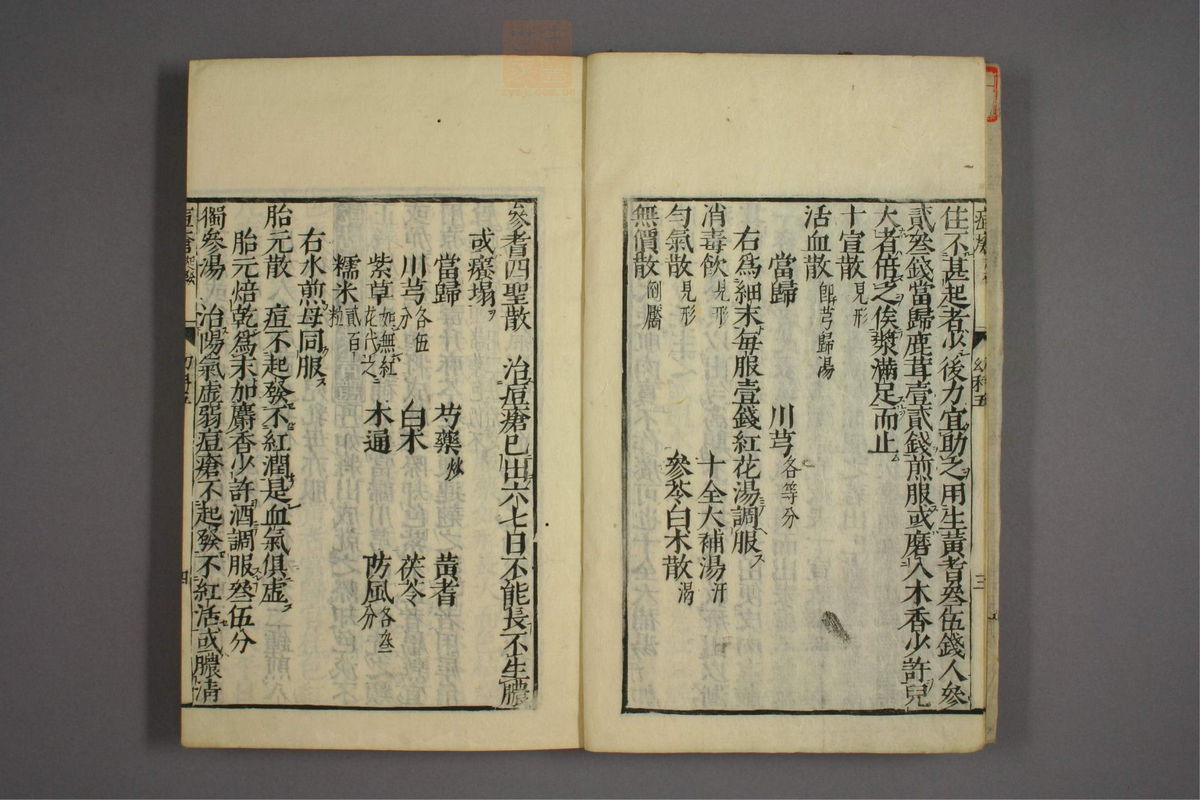 住不甚起者少後力宜助之用生黃耆叄伍錢人參
貳叄錢當歸鹿茸壹貳錢煎服或磨入木香少許兒
大者倍之俟漿滿足而止
十宣散見形
活血散即芎歸湯
當歸 川芎各等分
右爲細末每服壹錢紅花湯調服
消毒飲見形 十全大補湯汗
勻氣散見形 參苓白朮散渴
無價散倒黶
幼科五
三
參耆四聖散 治痘瘡已出六七日不能長不生膿
或癢塌
當歸 芍藥炒 黃耆
川芎各伍分 白朮 茯苓
紫草如無紅花代之 木通 防風各叄分
糯米貳百粒
右水煎母同服
胎元散 痘不起發不紅潤是血氣俱虛
胎元焙乾爲末加麝香少許酒調服叄伍分
獨參湯 治陽氣虛弱痘瘡不起發不紅活或膿清
痘瘡
四